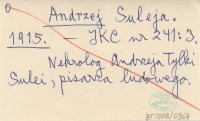 Andrzej Suleja.
1915. — IKC nr 241:3.
Nekrolog Andrzeja Tylki
Sulei, pisarza ludowego.
BT/008/0364